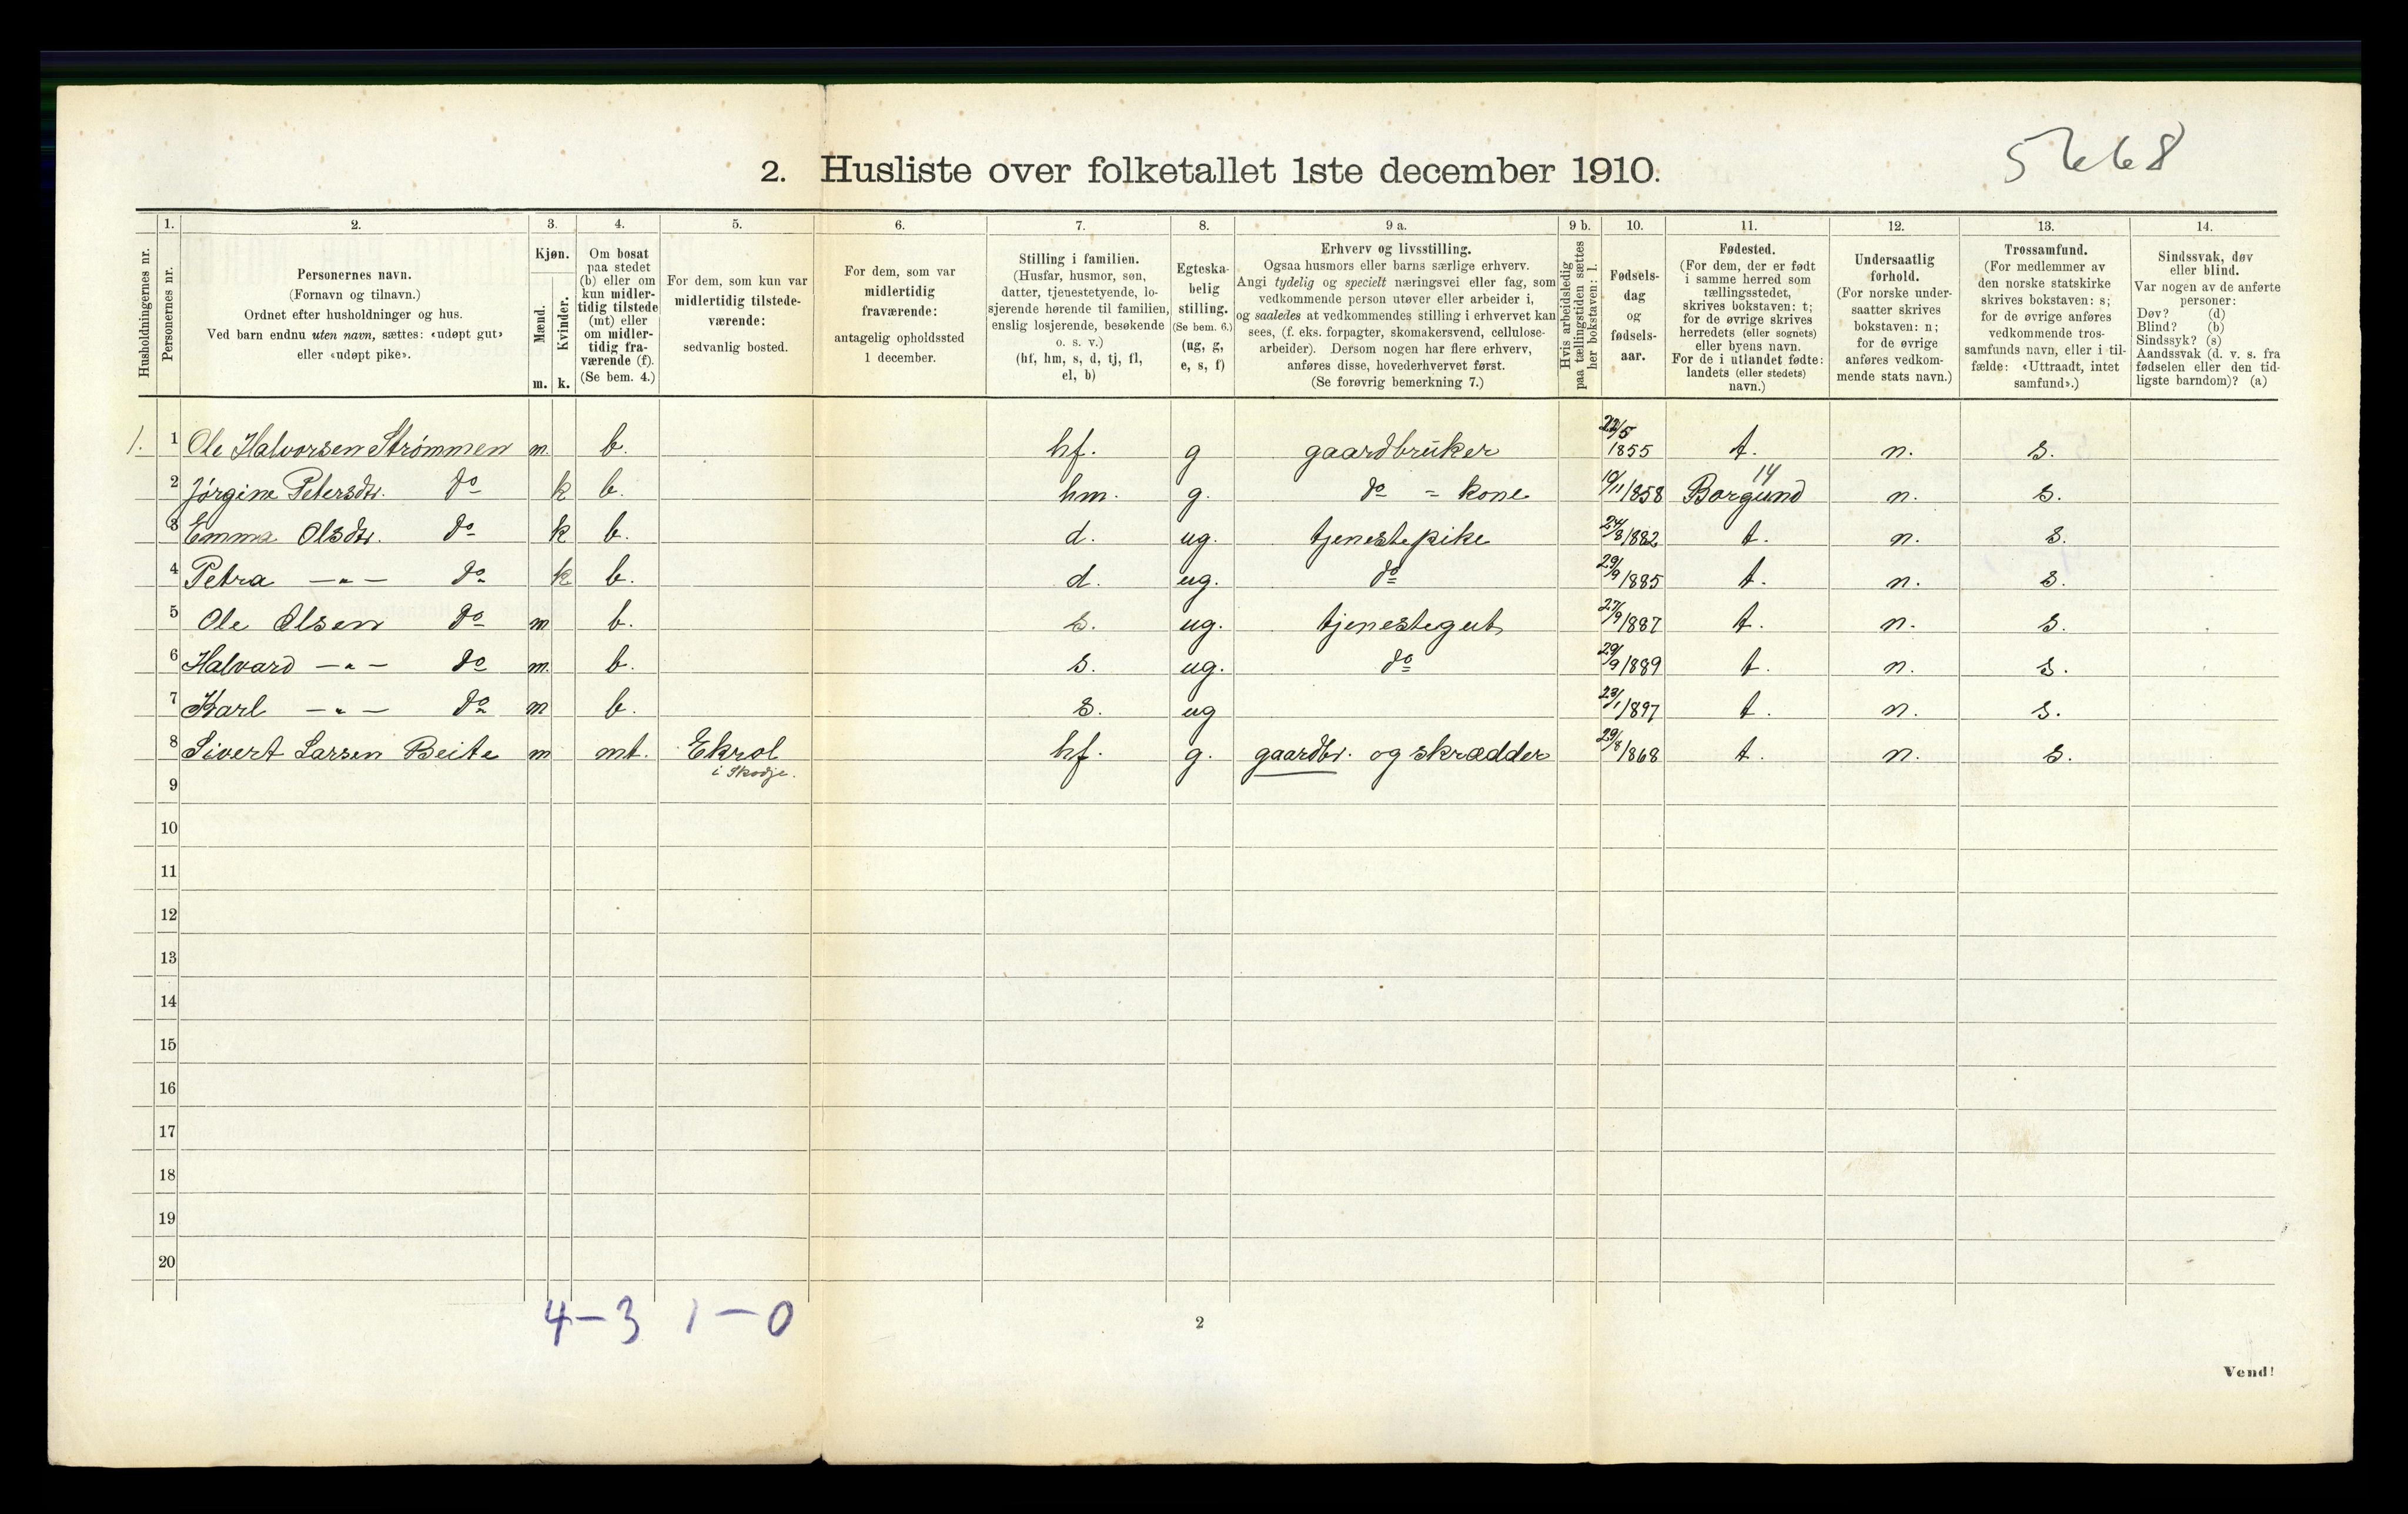 5668
2. Husliste over folketallet 1ste december 1910.
Husholdningernes nr.
1. Personernes nr.
2. Personernes navn.
(Fornavn og tilnavn.)
Ordnet efter husholdninger og hus.
Ved barn endnu uten navn, sættes: «udøpt gut»
eller «udøpt pike».
3. Kjøn.
Mænd. m.
Kvinder. k.
4. Om bosat
paa stedet
(b) eller om
kun midler-
tidig tilstede
(mt) eller
om midler-
tidig fra-
værende (f).
(Se bem. 4.)
5. For dem, som kun var
midlertidig tilstede-
værende:
sedvanlig bosted.
6. For dem, som var
midlertidig
fraværende:
antagelig opholdssted
1 december.
7. Stilling i familien.
(Husfar, husmor, søn,
datter, tjenestetyende, lo-
sjerende hørende til familien,
enslig losjerende, besøkende
o. s. v.)
(hf, hm, s, d, tj, fl,
el, b)
8. Egteska-
belig
stilling.
(Se bem. 6.)
(ug, g,
e, s, f)
9 a. Erhverv og livsstilling.
Ogsaa husmors eller barns særlige erhverv.
Angi tydelig og specielt næringsvei eller fag, som
vedkommende person utøver eller arbeider i,
og saaledes at vedkommendes stilling i erhvervet kan
sees, (f. eks. forpagter, skomakersvend, cellulose-
arbeider). Dersom nogen har flere erhverv,
anføres disse, hovederhvervet først.
(Se forøvrig bemerkning 7.)
9 b. Hvis arbeidsledig
paa tællingstiden sættes
her bokstaven: l.
10. Fødsels-
dag
og
fødsels-
aar.
11. Fødested.
(For dem, der er født
i samme herred som
tællingsstedet,
skrives bokstaven: t;
for de øvrige skrives
herredets (eller sognets)
eller byens navn.
For de i utlandet fødte:
landets (eller stedets)
navn.)
12. Undersaatlig
forhold.
(For norske under-
saatter skrives
bokstaven: n;
for de øvrige
anføres vedkom-
mende stats navn.)
13. Trossamfund.
(For medlemmer av
den norske statskirke
skrives bokstaven: s;
for de øvrige anføres
vedkommende tros-
samfunds navn, eller i til-
fælde: «Uttraadt, intet
samfund».)
14. Sindssvak, døv
eller blind.
Var nogen av de anførte
personer:
Døv? (d)
Blind? (b)
Sindssyk? (s)
Aandssvak (d. v. s. fra
fødselen eller den tid-
ligste barndom)? (a)
1. 1 Ole Halvorsen Strømmen m. b. hf. g gaardbruker 22/5 1855 t. n. s.
14
2 Jørgine Petersdtr. do k b. hm. g. do = kone 10/11 1858 Borgund n. s.
3 Emma Olsdtr. do k b. d. ug. tjenestepike 24/8 1882 t. n. s.
4 Petra —„— do k b. d. ug. do 29/9 1885 t. n. s.
5 Ole Olsen do m b. s. ug. tjenestegut 27/9 1887 t. n. s.
6 Halvard —„— do m. b. s. ug. do 29/9 1889 t. n. s.
7 Karl —„— do m b. s. ug 23/1 1897 t. n. s.
8 Sivert Larsen Beite m mt. Ekrol hf. g. gaardbr. og skrædder 29/8 1868 t. n. s.
i Skodje.
9
10
11
12
13
14
15
16
17
18
19
20
4 – 3 1 – 0
2
Vend!